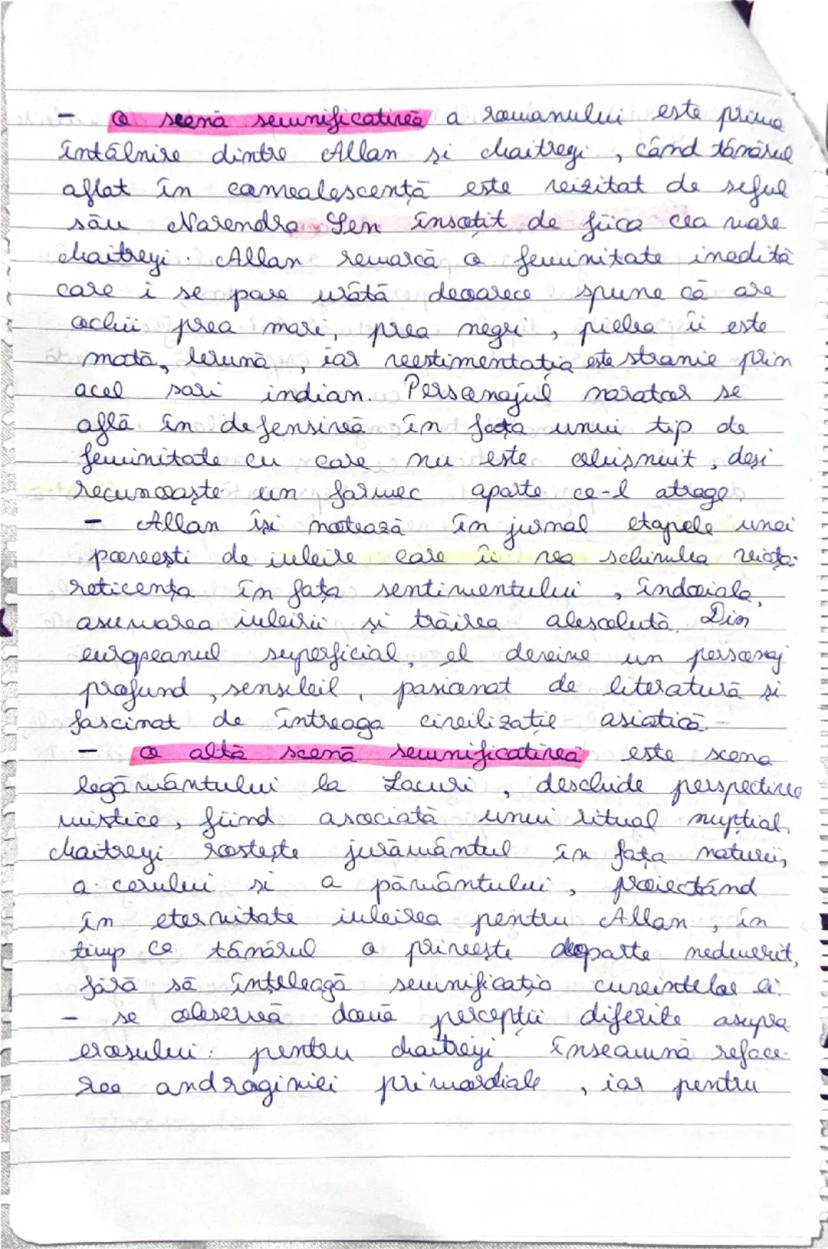 - O scenă semnificativă a romanului este prima
întâlnire dintre Allan și Maitreyi, când tânărul
aflat în convalescență este vizitat de șeful
său Narendra Sen însoțit de fiica cea mare
Maitreyi. Allan remarcă o feminitate inedită
care i se pare urâtă deoarece spune că are
ochii prea mari, prea negri, pielea îi este
mată, brună, iar vestimentația este stranie prin
acel sari indian. Personajul narator se
află în defensivă în fața unui tip de
feminitate cu care nu este obișnuit, deși
recunoaște un farmec aparte ce-l atrage
- Allan își notează în jurnal etapele unei
povești de iubire care îi va schimba viața:
reticența în fața sentimentului, îndoiala,
asumarea iubirii și trăirea absolută. Din
europeanul superficial, el devine un personaj
profund, sensibil, pasionat de literatură și
fascinat de întreaga civilizație asiatică.
- O altă scenă semnificativă este scena
legământului la Lacuri, deschide perspective
mistice, fiind asociată unui ritual nupțial,
Maitreyi rostește jurământul în fața naturii,
a cerului și a pământului, proiectând
în eternitate iubirea pentru Allan, în
timp ce tânărul o privește departe nedumerit,
fără să înțeleagă semnificația cuvintelor ei.
- se observă două percepții diferite asupra
erosului: pentru Maitreyi înseamnă reface-
rea androginiei primordiale, iar pentru